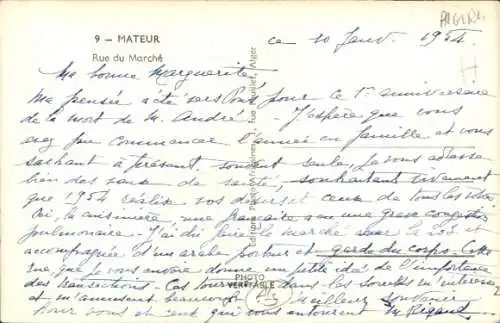 9 — MATEUR
Rue du Marché
ce 10 Janv. 1954
Ma bonne Marguerite
Ma pensée a été vers vous pour ce 1er anniversaire
de la mort de M. André. J'espère que vous
avez pu commencer l'année en famille et vous
sachant à présent souvent seule, je vous adresse
bien des vœux de santé, souhaitant vivement
que 1954 réalise vos désirs et ceux de tous les vôtres
Ici, la cuisinière, une française a eu une grave congestion
pulmonaire - J'ai dû faire le marché avec le
accompagnée d'un arabe porteur et garde du corps. Cette
vue, que je vous envoie donne une petite idée de l'importance
des transactions - Ces tournées dans les souks m'intéressent
et m'amusent beaucoup Meilleur souvenir
pour vous et ceux qui vous entourent M Rigaud
PHOTO
VERITABLE